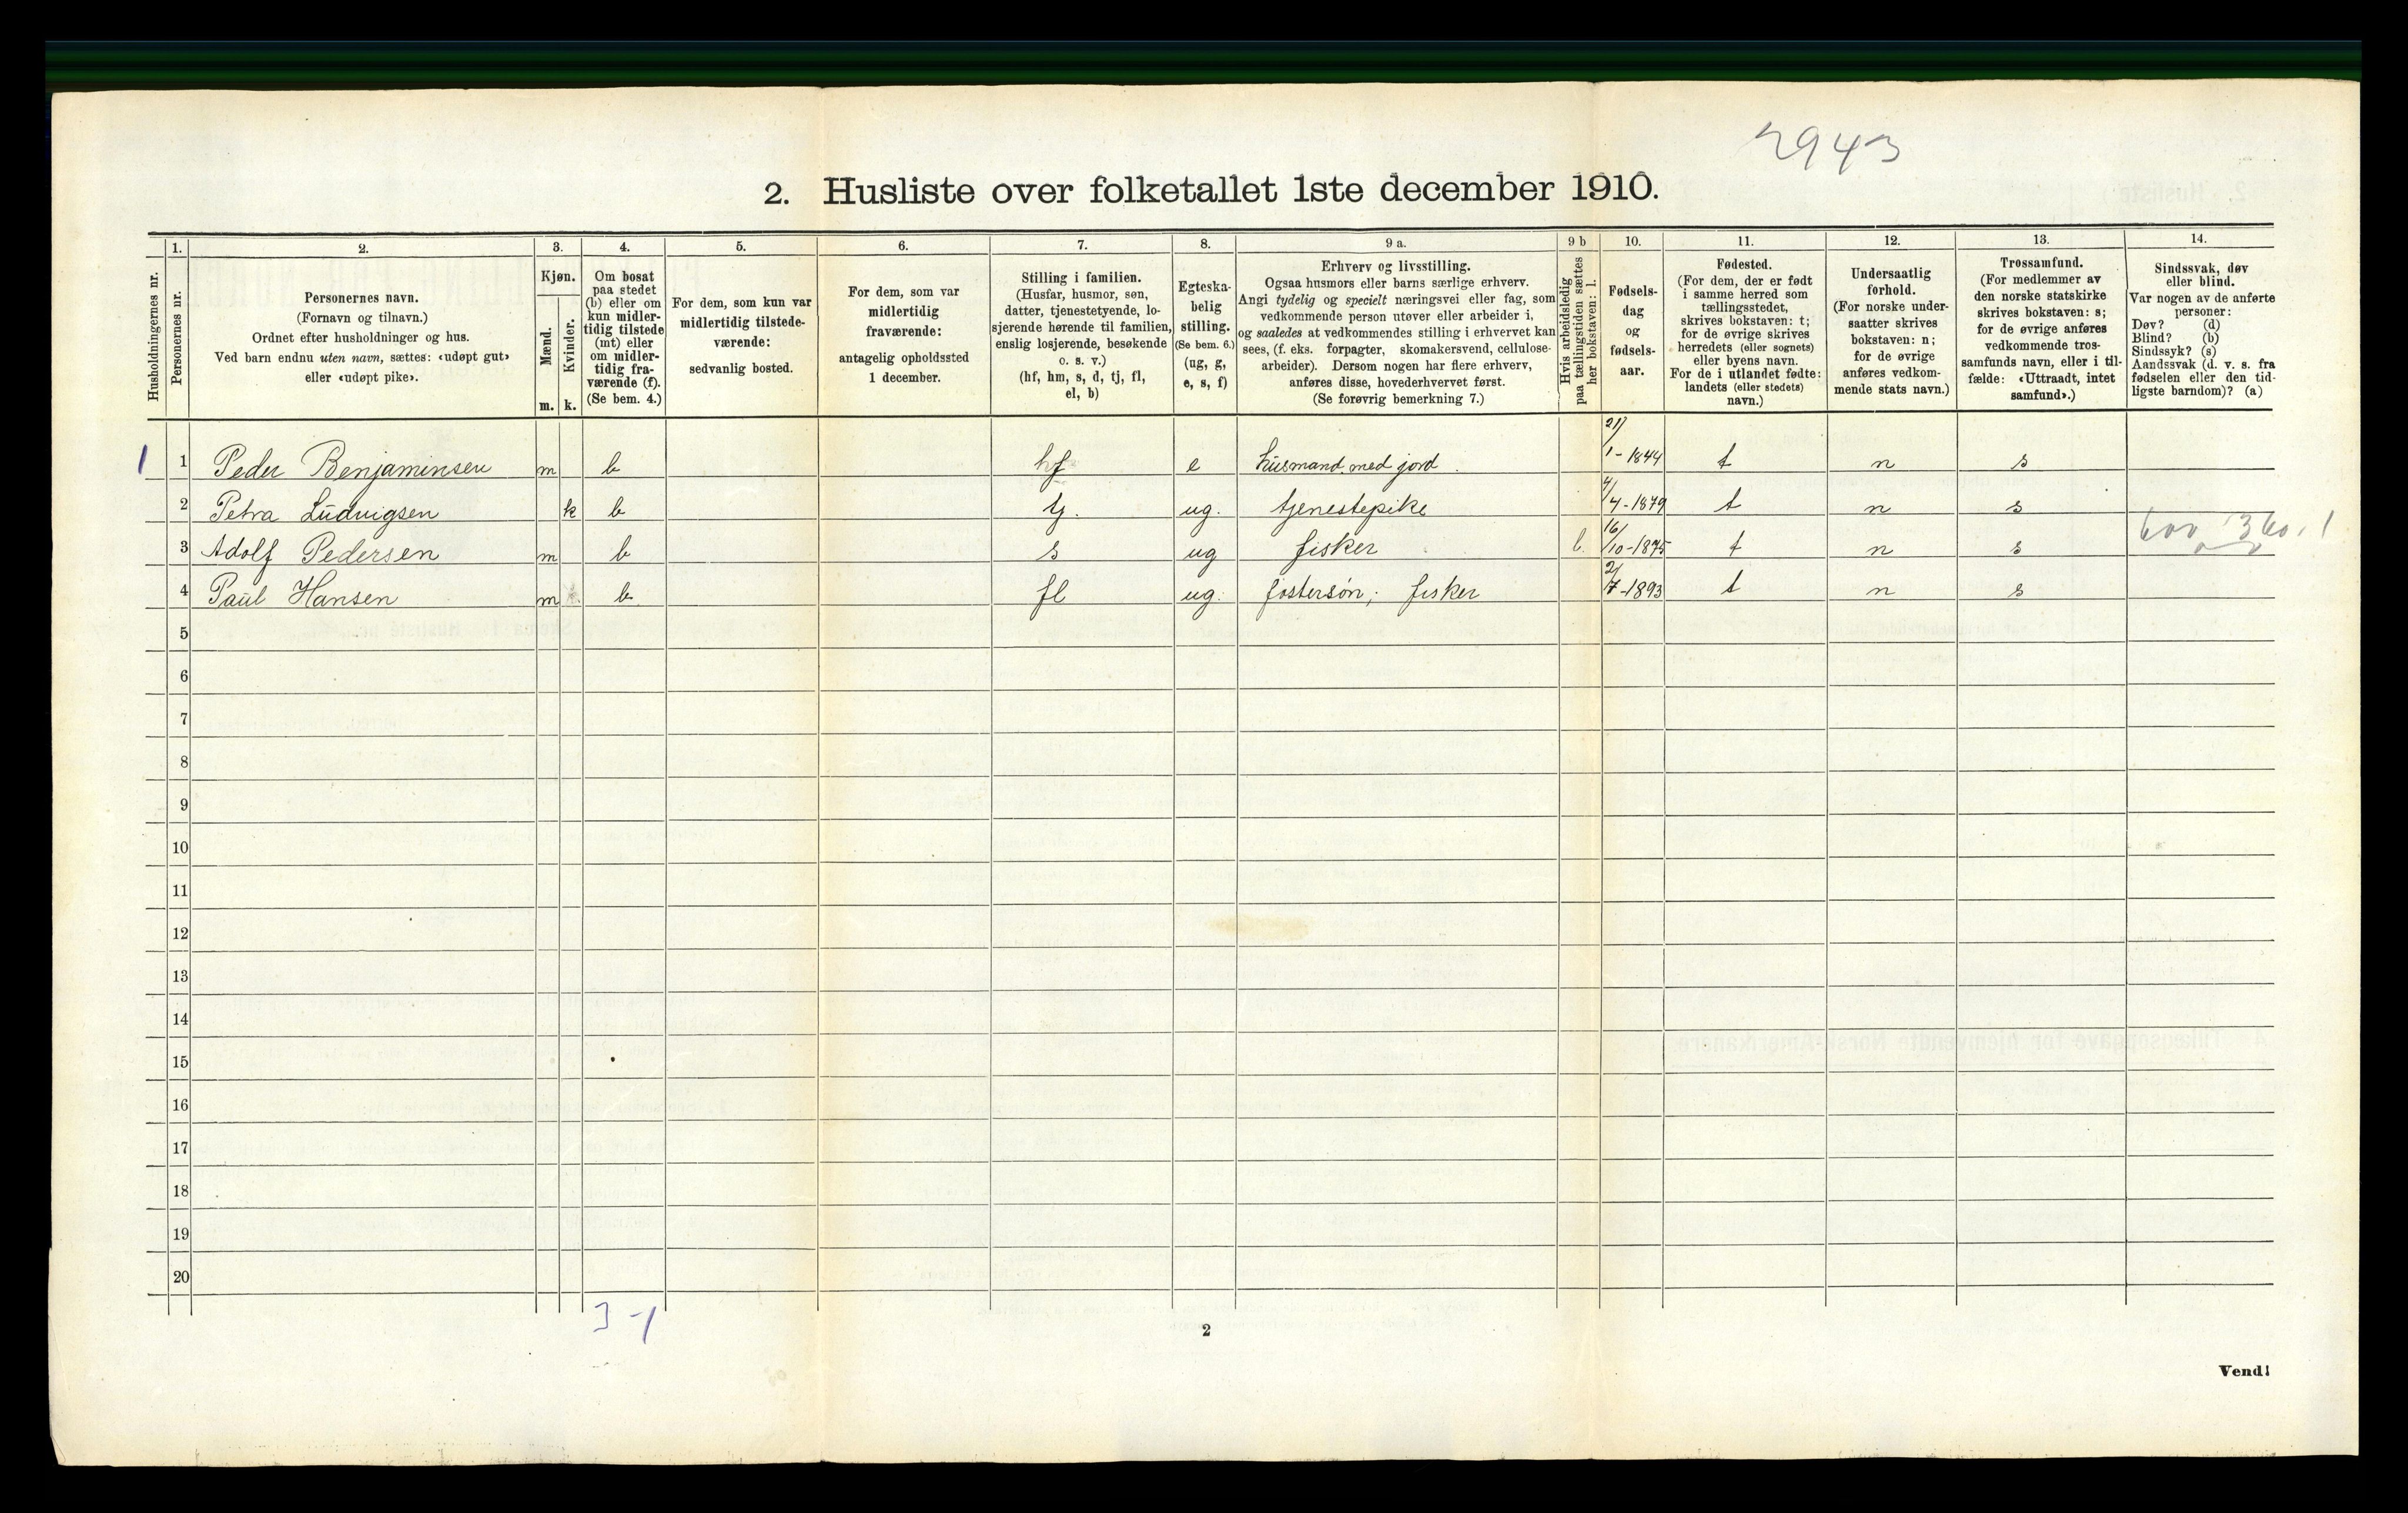 2943
2. Husliste over folketallet 1ste december 1910.
Husholdningernes nr.
1.
Personernes nr.
2.
Personernes navn.
(Fornavn og tilnavn.)
Ordnet efter husholdninger og hus.
Ved barn endnu uten navn, sættes: «udøpt gut»
eller «udøpt pike».
3.
Kjøn.
Mænd.
Kvinder.
m. k.
4.
Om bosat
paa stedet
(b) eller om
kun midler-
tidig tilstede
(mt) eller
om midler-
tidig fra-
værende (f).
(Se bem. 4.)
5.
For dem, som kun var
midlertidig tilstede-
værende:
sedvanlig bosted.
6.
For dem, som var
midlertidig
fraværende:
antagelig opholdssted
1 december.
7.
Stilling i familien.
(Husfar, husmor, søn,
datter, tjenestetyende, lo-
sjerende hørende til familien,
enslig losjerende, besøkende
o. s. v.)
(hf, hm, s, d, tj, fl,
el, b)
8.
Egteska-
belig
stilling.
(Se bem. 6.)
(ug, g,
e, s, f)
9 a.
Erhverv og livsstilling.
Ogsaa husmors eller barns særlige erhverv.
Angi tydelig og specielt næringsvei eller fag, som
vedkommende person utøver eller arbeider i,
og saaledes at vedkommendes stilling i erhvervet kan
sees, (f. eks. forpagter, skomakersvend, cellulose-
arbeider). Dersom nogen har flere erhverv,
anføres disse, hovederhvervet først.
(Se forøvrig bemerkning 7.)
9 b
Hvis arbeidsledig
paa tællingstiden sættes
her bokstaven: l.
10.
Fødsels-
dag
og
fødsels-
aar.
11.
Fødested.
(For dem, der er født
i samme herred som
tællingsstedet,
skrives bokstaven: t;
for de øvrige skrives
herredets (eller sognets)
eller byens navn.
For de i utlandet fødte:
landets (eller stedets)
navn.)
12.
Undersaatlig
forhold.
(For norske under-
saatter skrives
bokstaven: n;
for de øvrige
anføres vedkom-
mende stats navn.)
13.
Trossamfund.
(For medlemmer av
den norske statskirke
skrives bokstaven: s;
for de øvrige anføres
vedkommende tros-
samfunds navn, eller i til-
fælde: «Uttraadt, intet
samfund».)
14.
Sindssvak, døv
eller blind.
Var nogen av de anførte
personer:
Døv? (d)
Blind? (b)
Sindssyk? (s)
Aandssvak (d. v. s. fra
fødselen eller den tid-
ligste barndom)? (a)
1 1 Peder Benjaminsen m b hf e husmand med jord. 21/1-1844 t n s
2 Petra Ludvigsen k b tj. ug. tjenestepike 4/4-1879 t n s
3 Adolf Pedersen m b s ug fisker l. 16/10-1875 t n s 600 360.1
4 Paul Hansen m b fl ug. fostersøn; fisker 2/7-1893 t n s
5
6
7
8
9
10
11
12
13
14
15
16
17
18
19
20
3-1
2
Vend!